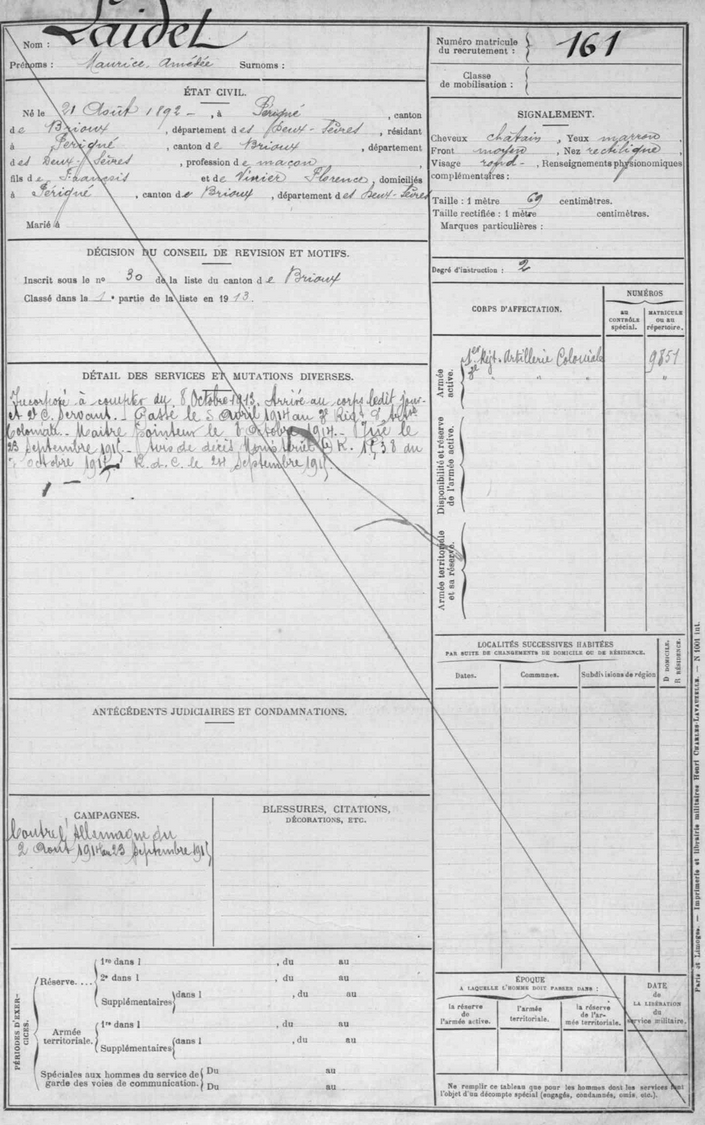 Nom : Laidet
Prénoms : Maurice Amédée Surnoms :
Numéro matricule du recrutement : 161
Classe de mobilisation :
ÉTAT CIVIL.
Né le 21 Août 1892 -, à Périgné, canton
de Brioux, département des Deux-Sèvres, résidant
à Périgné, canton de Brioux, département
des Deux-Sèvres, profession de maçon,
fils de François et de Vinier Florence, domiciliés
à Périgné, canton de Brioux, département des Deux-Sèvres
Marié à
SIGNALEMENT.
Cheveux châtain, Yeux marron,
Front moyen, Nez rectiligne,
Visage rond -, Renseignements physionomiques
complémentaires :
Taille : 1 mètre 69 centimètres.
Taille rectifiée : 1 mètre centimètres.
Marques particulières :
Degré d'instruction : 2
DÉCISION DU CONSEIL DE REVISION ET MOTIFS.
Inscrit sous le nº 30 de la liste du canton de Brioux
Classé dans la 1e partie de la liste en 1913.
CORPS D'AFFECTATION.
NUMÉROS
AU CONTRÔLE spécial.
MATRICULE OU AU répertoire.
Armée active.
1er Régt. Artillerie Coloniale 9851
3e " " "
Disponibilité et réserve de l'armée active.
Armée territoriale et sa réserve.
DÉTAIL DES SERVICES ET MUTATIONS DIVERSES.
Incorporé à compter du 8 Octobre 1913. Arrivé au corps ledit jour
et 2e C. Servant. Passé le 5 Avril 1914 au 3e Rég. d'Artie
Coloniale. Maître Pointeur le Octobre 1914. Tué le
23 Septembre 1915. Avis de décès Ministériel K. 1538 du
Octobre 1915. R. d. C. le 24 Septembre 1915
LOCALITÉS SUCCESSIVES HABITÉES
PAR SUITE DE CHANGEMENTS DE DOMICILE OU DE RÉSIDENCE.
Dates. Communes. Subdivisions de région
D DOMICILE.
R RÉSIDENCE.
ANTÉCÉDENTS JUDICIAIRES ET CONDAMNATIONS.
CAMPAGNES.
Contre l'Allemagne du
2 Août 1914 au 23 Septembre 1915
BLESSURES, CITATIONS,
DÉCORATIONS, ETC.
PÉRIODES D'EXERCICES.
Réserve....
1re dans l , du au
2e dans l , du au
Supplémentaires dans l , du au
Armée territoriale.
1re dans l , du au
Supplémentaires dans l , du au
Spéciales aux hommes du service de garde des voies de communication.
Du au
Du au
ÉPOQUE
A LAQUELLE L'HOMME DOIT PASSER DANS :
la réserve de l'armée active.
l'armée territoriale.
la réserve de l'armée territoriale.
DATE de LA LIBÉRATION du service militaire.
Ne remplir ce tableau que pour les hommes dont les services font
l'objet d'un décompte spécial (engagés, condamnés, omis, etc.).
Paris et Limoges. — Imprimerie et librairie militaires Henri CHARLES-LAVAUZELLE. — N 1001 int.